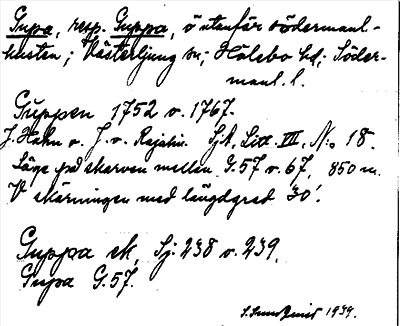 Gupa, resp. Guppa, ö utanför södermanl-
kusten; Västerljung sn; Hölebo hd; Söder-
manl. l.
Guppen 1752 o. 1767.
J. Hahn o. J. v. Rajalin. Sj.A, Litt. VII, No 18.
Läge på skarven mellan G.57 o. 67, 850 m.
V skärningen med längdgrad 30'.
Guppa sk. Sj. 238 o. 239.
Gupa G. 57.
S. Sundquist 1939.